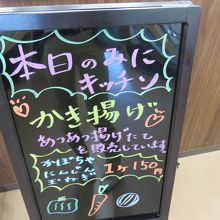 本日のみに
キッチン
かき揚げ
あつあつ揚げたて
を販売しています
かぼちゃ
にんじん
玉ねぎ
1ケ150円